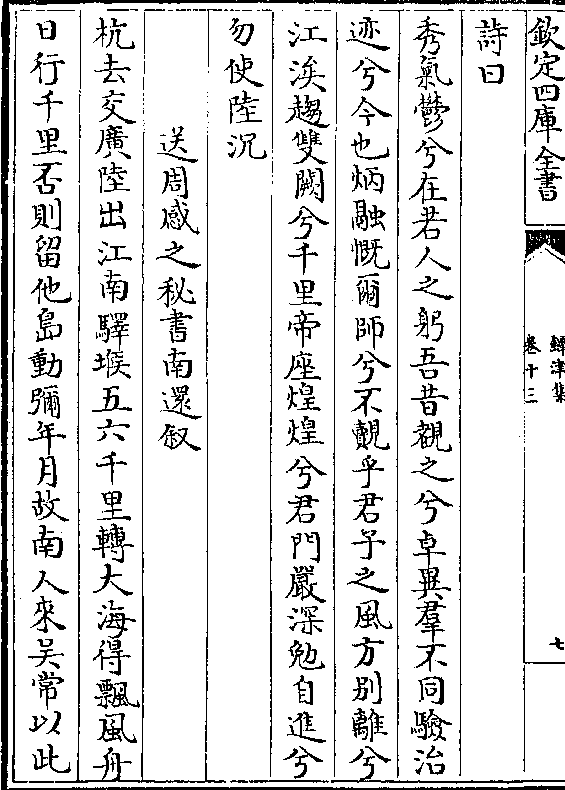 欽定四庫全書
鐔津集
卷十三
七
詩曰
秀氣鬱兮在君人之躬吾昔觀之兮卓異羣不同驗治
迹兮今也炳融慨爾師兮不覿乎君子之風方别離兮
江涘趨雙闕兮千里帝座煌煌兮君門嚴深勉自進兮
勿使陸沉
送周感之秘書南還叙
杭去交廣陸出江南驛堠五六千里轉大海得飄風舟
日行千里否則留他島動彌年月故南人來吳常以此